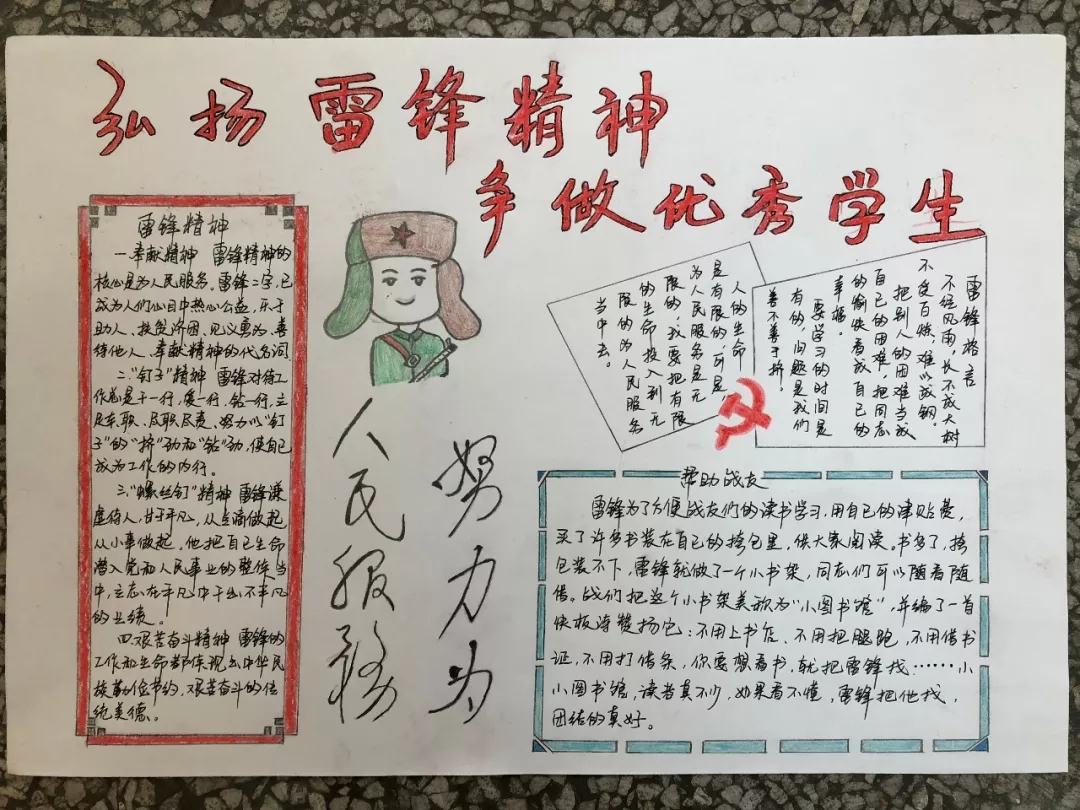 弘扬雷锋精神
争做优秀学生
雷锋精神
一.奉献精神 雷锋精神的
核心是为人民服务。雷锋二字,已
成为人们心目中热心公益,乐于
助人、扶贫济困、见义勇为、善
待他人、奉献精神的代名词
二."钉子"精神 雷锋对待工
作总是干一行,爱一行,钻一行,立
足本职、尽职尽责,努力以"钉
子"的"挤"劲和"钻"劲,使自己
成为工作的内行。
三."螺丝钉"精神 雷锋谦
虚待人,甘于平凡,从点滴做起
从小事做起,他把自己生命
潜入党和人民事业的整体当
中,立志在平凡中干出不平凡
的业绩。
四.艰苦奋斗精神 雷锋的
工作和生命都体现出中华民
族勤俭节约,艰苦奋斗的传
统美德。
努力为
人民服务
人的生命
是有限的,可是,
为人民服务是无
限的,我要把有限
的生命投入到无
限的为人民服务
当中去。
雷锋格言
不经风雨,长不成大树
不受百炼,难以成钢。
把别人的困难当成
自己的困难,把同志
的愉快看成自己的
幸福。
要学习的时间是
有的,问题是我们
善不善于挤,
帮助战友
雷锋为了方便战友们的读书学习,用自己的津贴费,
买了许多书装在自己的挎包里,供大家阅读。书多了,挎
包装不下,雷锋就做了一个小书架,同志们可以随看随
借。战们把这个小书架美称为"小图书馆",并编了一首
快板诗赞扬它:不用上书店、不用把腿跑,不用借书
证,不用打借条,你要想看书,就把雷锋找……小
小图书馆,读者真不少,如果看不懂,雷锋把他找,
团结的真好。